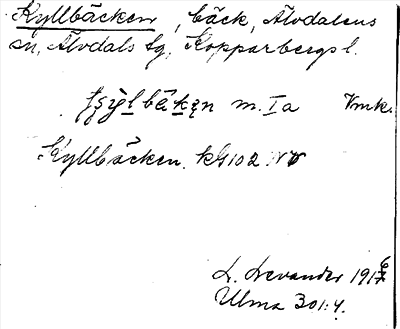 Kyllbäcken, bäck, Älvdalens
sn, Älvdals tg, Kopparbergs l.
bäken m. Ia Vmk.
Kyllbäcken. kG102 NV
L. Levander 1916
Ulma 301:4.